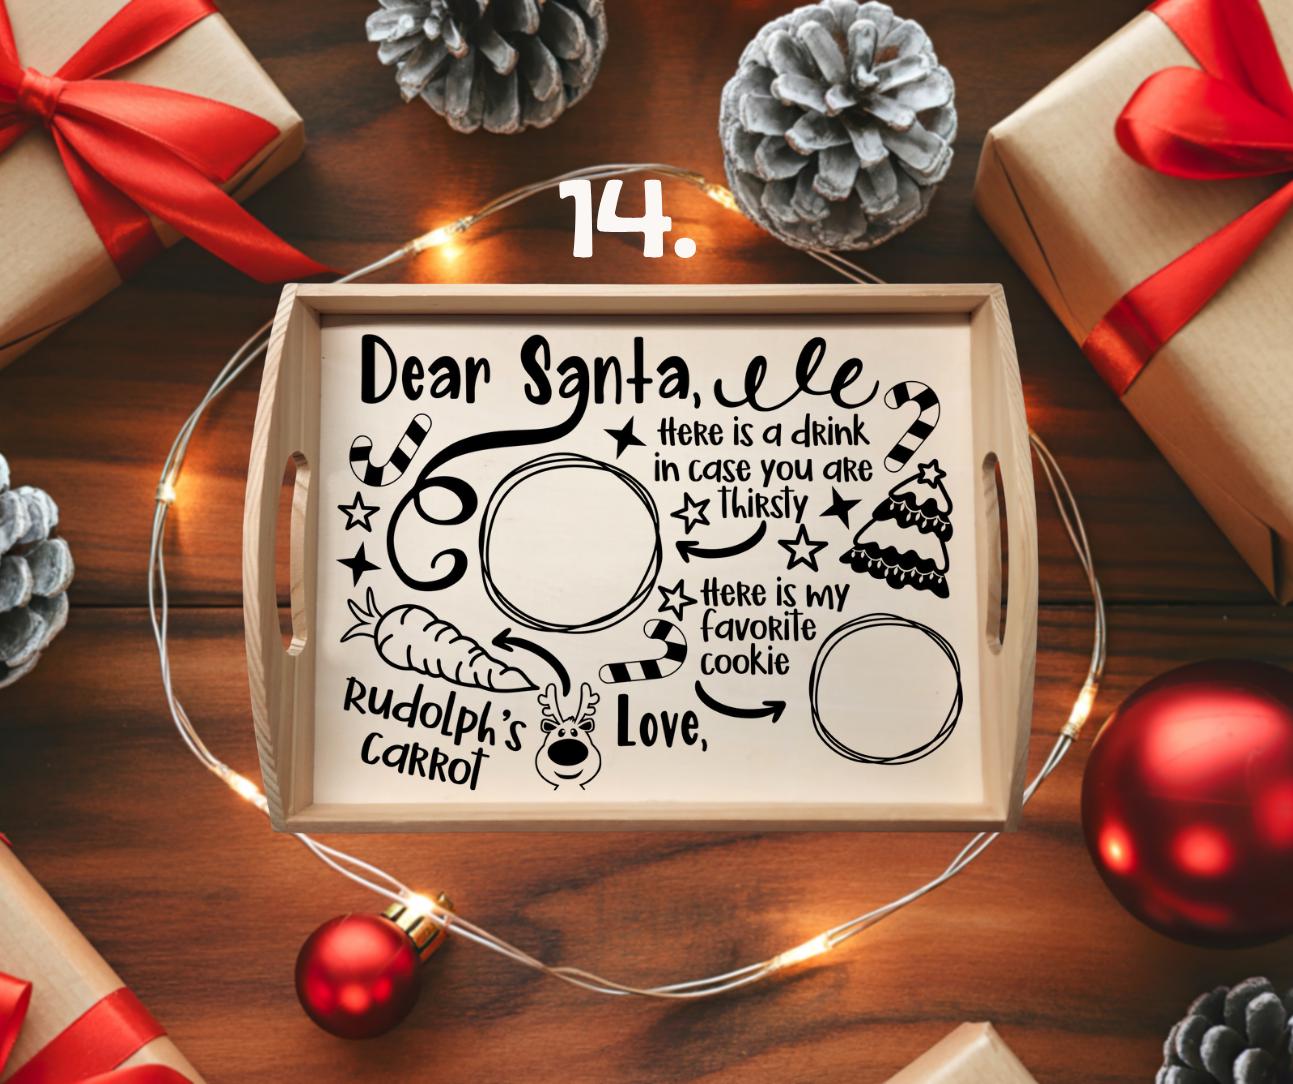 14.
Dear Santa,
Here is a drink
in case you are
thirsty
Here is my
favorite
cookie
Rudolph's
carrot
Love,